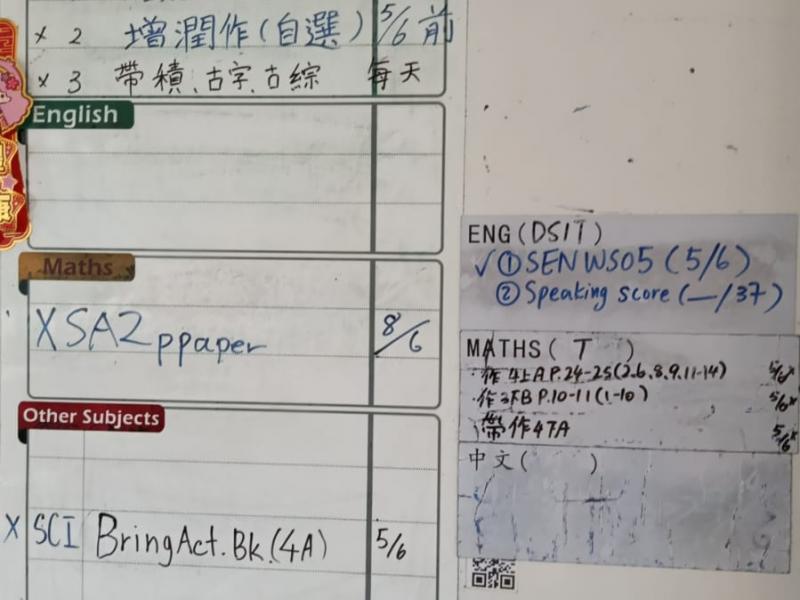 x 2 增潤作(自選) 5/6前
x 3 帶積、古字、古綜 每天
English
Maths
X SA2 ppaper 8/6
Other Subjects
X SCI Bring Act. Bk. (4A) 5/6
ENG (DSIT)
✓ ① SEN WS05 (5/6)
② Speaking score (__/37)
MATHS ( T )
· 作4上A P.24-25(2.6.8.9.11-14) 5/6 x
· 作3下B P.10-11(1-10) 5/6 x
· 帶作4下A 5/6 x
中文( )